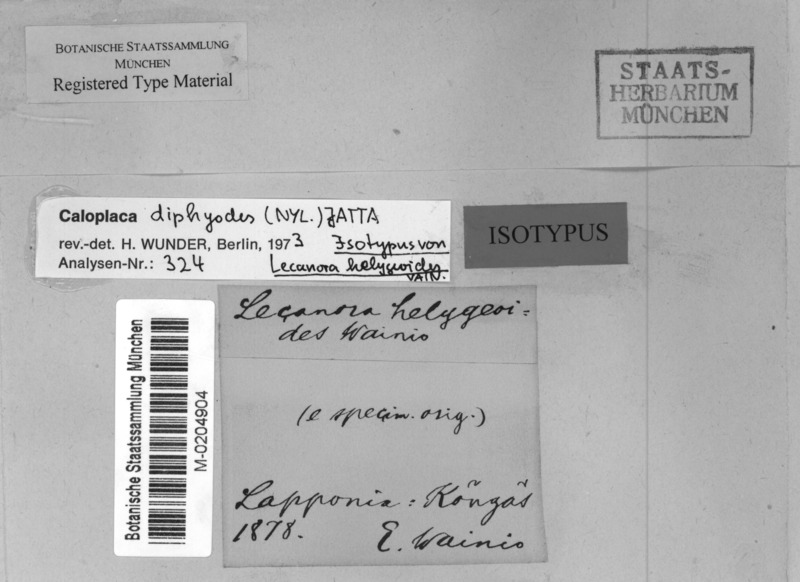 BOTANISCHE STAATSSAMMLUNG
MÜNCHEN
Registered Type Material
STAATS-
HERBARIUM
MÜNCHEN
Caloplaca diphyodes (NYL.) JATTA
rev.-det. H. WUNDER, Berlin, 1973 Isotypus von
Analysen-Nr.: 324 Lecanora helygeoides
VAIN.
ISOTYPUS
Lecanora helygeoi=
des Wainio
(e specim. orig.)
Lapponia: Köngäs
1878. E. Wainio
Botanische Staatssammlung München
M-0204904